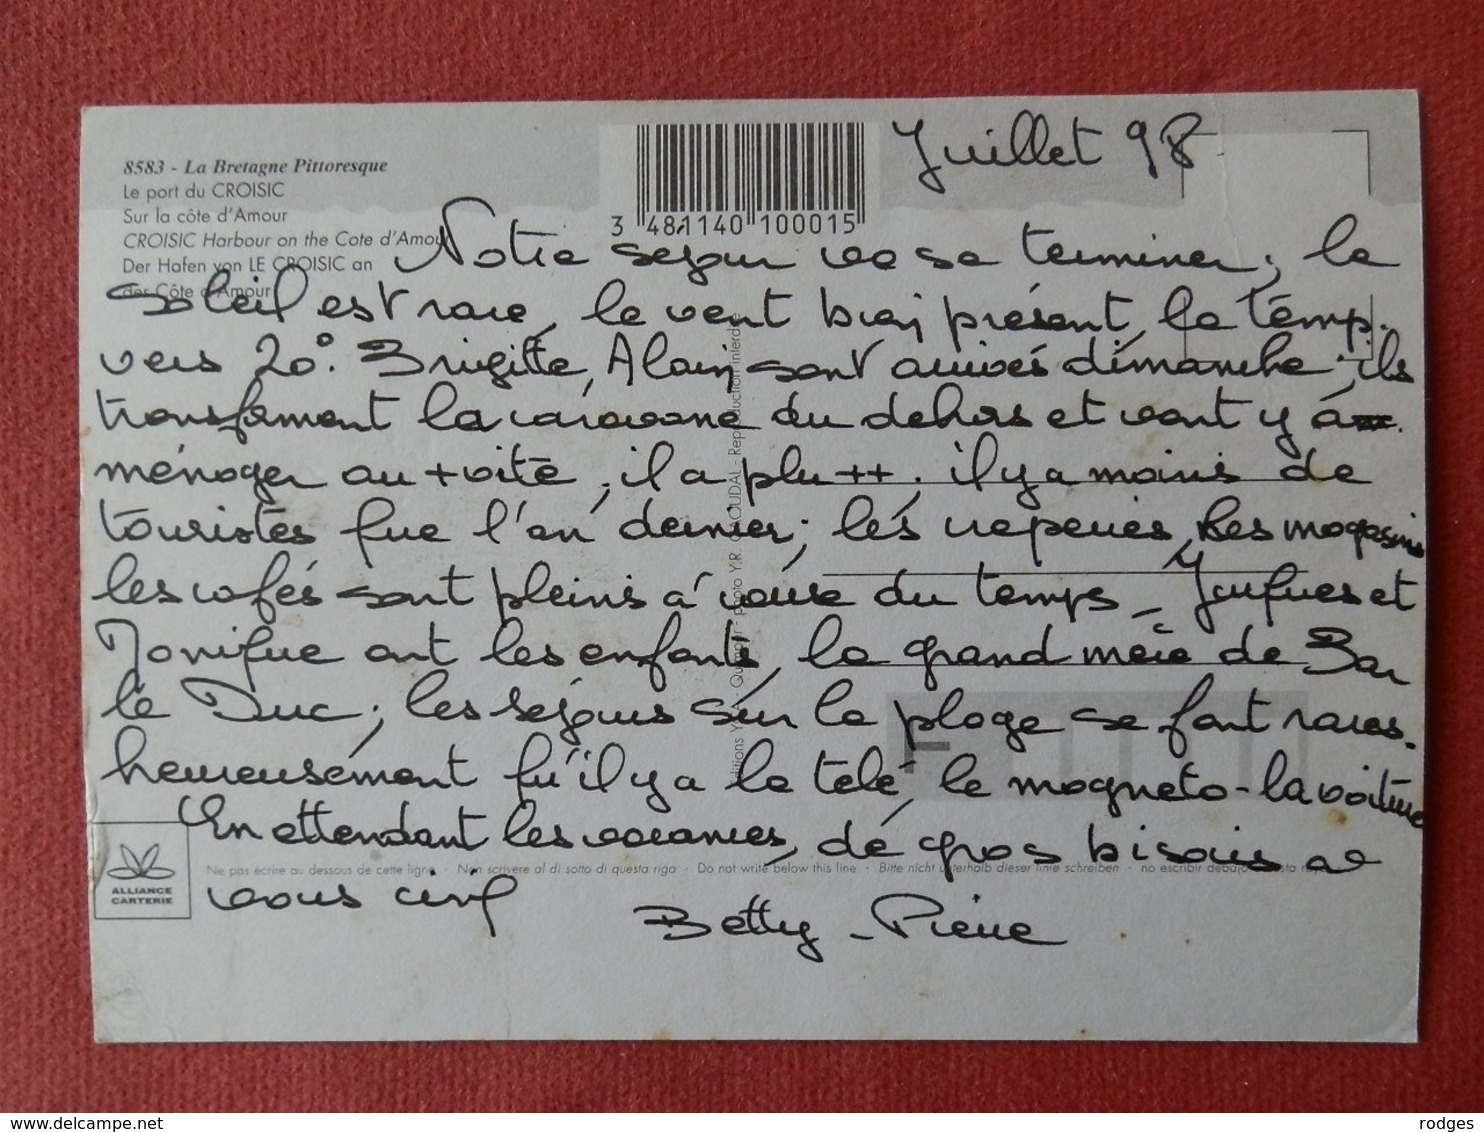 Juillet 98
8583 - La Bretagne Pittoresque
Le port du CROISIC
Sur la côte d'Amour
CROISIC Harbour on the Cote d'Amour
Der Hafen von LE CROISIC an
der Côte d'Amour
3 481140 100015
Notre séjour va se terminer ; le
soleil est rare, le vent bien présent, la temp.
vers 20°. Brigitte, Alain sont arrivés dimanche ; ils
transforment la caravane du dehors et vont y a
ménager au + vite ; il a plu ++ ; il y a moins de
touristes que l'an dernier ; les creperies, les magasins
les cafés sont pleins à cause du temps _ Jacques et
Monique ont les enfants, la grand mère de Bar
le Duc ; les séjours sur la plage se font rares.
heureusement qu'il y a la télé, le magneto - la voiture
En attendant les vacances, de gros bisous à
vous cinq
Betty - Pierre
Editions Y.R. Quimper - Photo Y.R. CAOUDAL - Reproduction interdite
ALLIANCE
CARTERIE
Ne pas écrire au dessous de cette ligne · Non scrivere al di sotto di questa riga · Do not write below this line · Bitte nicht unterhalb dieser linie schreiben · no escribir debajo
www.delcampe.net
rodges